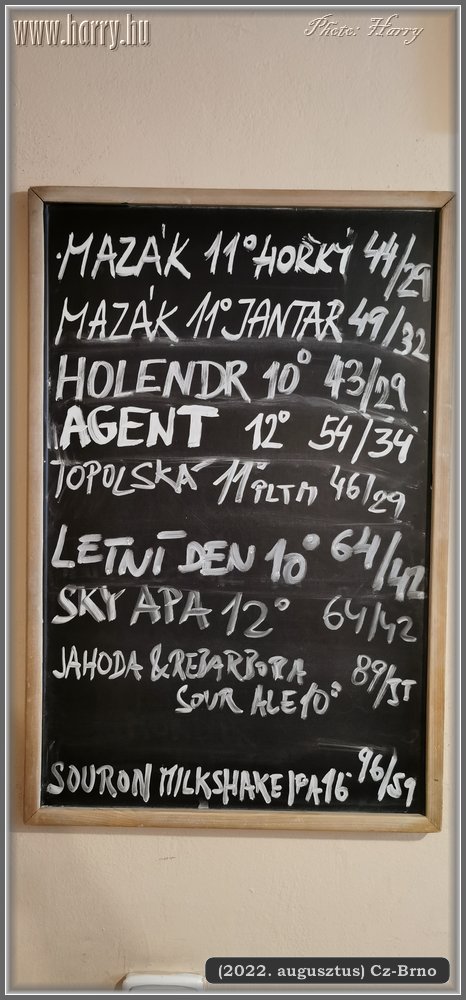 www.harry.hu
Photo: Harry
MAZÁK 11° HOŘKÝ 44/29
MAZÁK 11° JANTAR 49/32
HOLENDR 10° 43/29
AGENT 12° 54/34
TOPOLSKÁ 11° 46/29
LETNÍ DEN 10° 64/42
SKY APA 12° 64/42
JAHODA & REBARBORA 89/55
SOUR ALE 10°
SOURON MILKSHAKE IPA 16° 96/59
(2022. augusztus) Cz-Brno